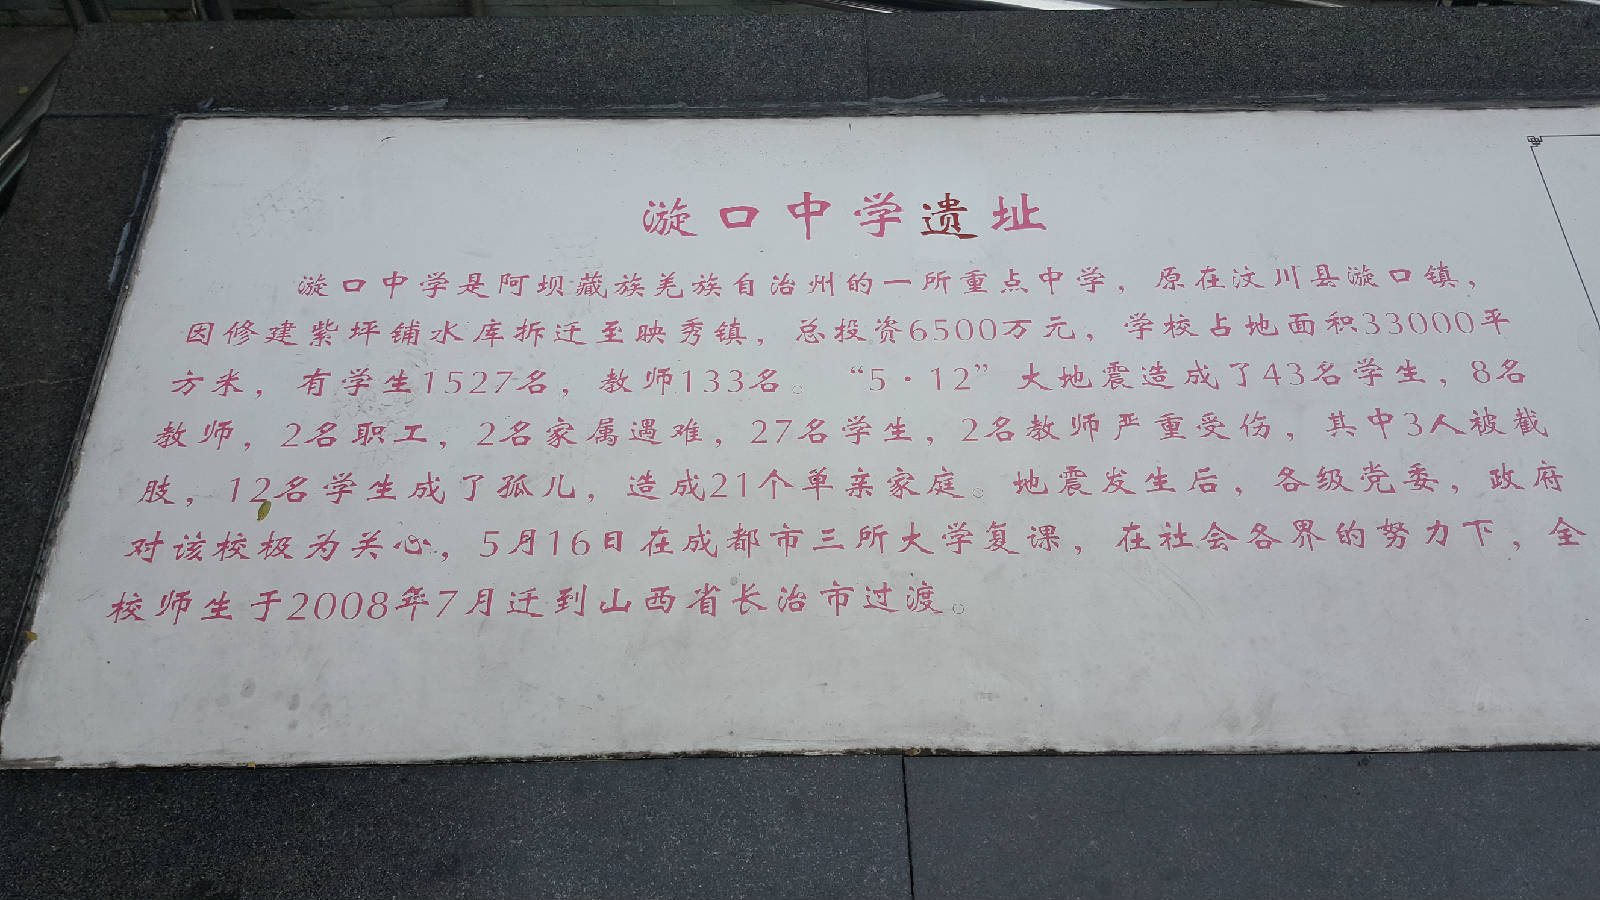 漩口中学遗址
漩口中学是阿坝藏族羌族自治州的一所重点中学，原在汶川县漩口镇，
因修建紫坪铺水库拆迁至映秀镇，总投资6500万元，学校占地面积33000平
方米，有学生1527名，教师133名。“5·12”大地震造成了43名学生，8名
教师，2名职工，2名家属遇难，27名学生，2名教师严重受伤，其中3人被截
肢，12名学生成了孤儿，造成21个单亲家庭。地震发生后，各级党委，政府
对该校极为关心，5月16日在成都市三所大学复课，在社会各界的努力下，全
校师生于2008年7月迁到山西省长治市过渡。